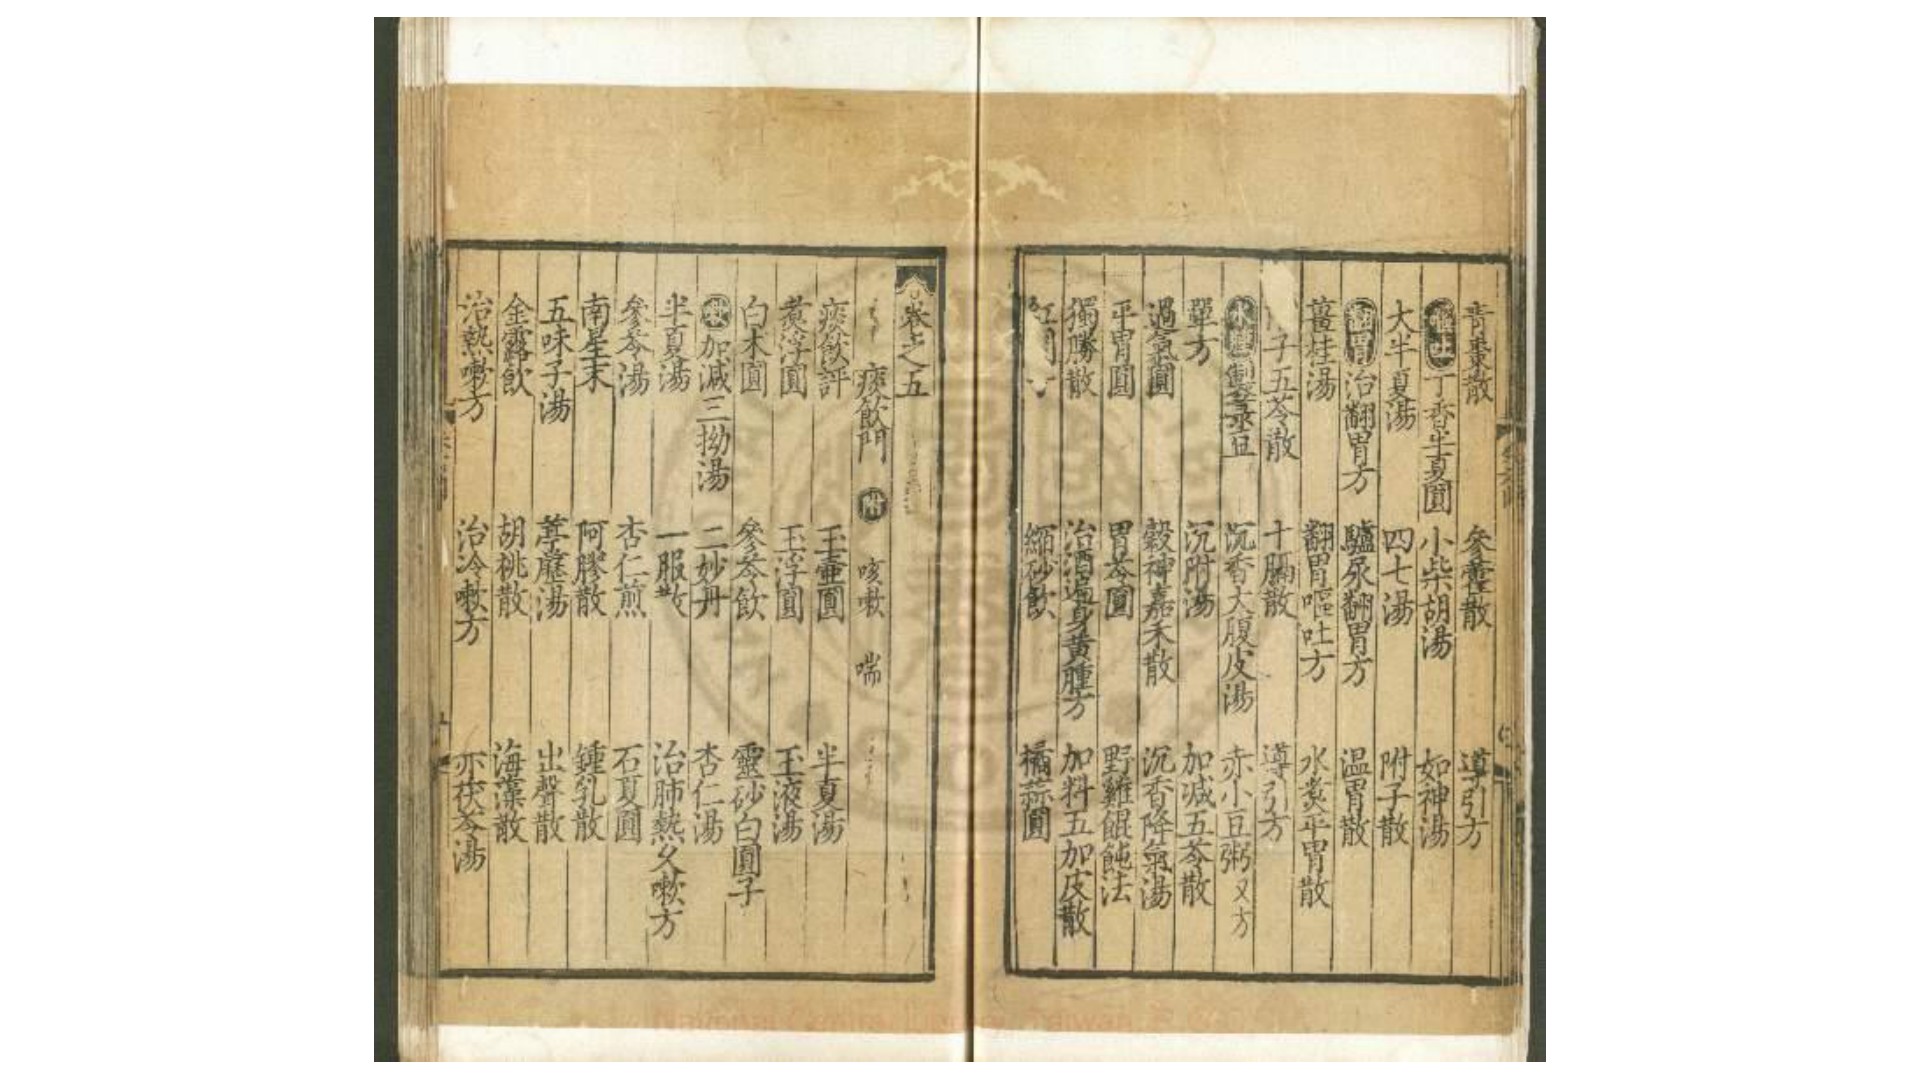 青棗散 參藿散 導引方
嘔吐 丁香半夏圓 小柴胡湯 如神湯
大半夏湯 四七湯 附子散
翻胃 治翻胃方 驢尿翻胃方 温胃散
薑桂湯 翻胃嘔吐方 水煑平胃散
子五苓散 十膈散 導引方
水腫 沉香大腹皮湯 赤小豆粥 又方
單方 沉附湯 加减五苓散
遇氣圓 穀神嘉禾散 沉香降氣湯
平胃圓 胃苓圓 野雞餛飩法
獨勝散 治酒遍身黄腫方 加料五加皮散
紅 縮砂飲 橘蒜圓
卷之五
痰飲門 附 咳嗽 喘
痰飲評 玉壷圓 半夏湯
煑浮圓 玉浮圓 玉液湯
白术圓 參苓飲 靈砂白圓子
加减三拗湯 二妙丹 杏仁湯
半夏湯 一服散 治肺熱久嗽方
參苓湯 杏仁煎 石夏圓
南星末 阿膠散 鍾乳散
五味子湯 葶藶湯 出聲散
金露飲 胡桃散 海藻散
治熱嗽方 治冷嗽方 茯苓湯